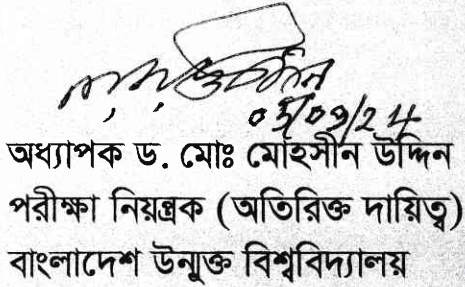 ০৩/০৯/২৪
অধ্যাপক ড. মোঃ মোহসীন উদ্দিন
পরীক্ষা নিয়ন্ত্রক (অতিরিক্ত দায়িত্ব)
বাংলাদেশ উন্মুক্ত বিশ্ববিদ্যালয়